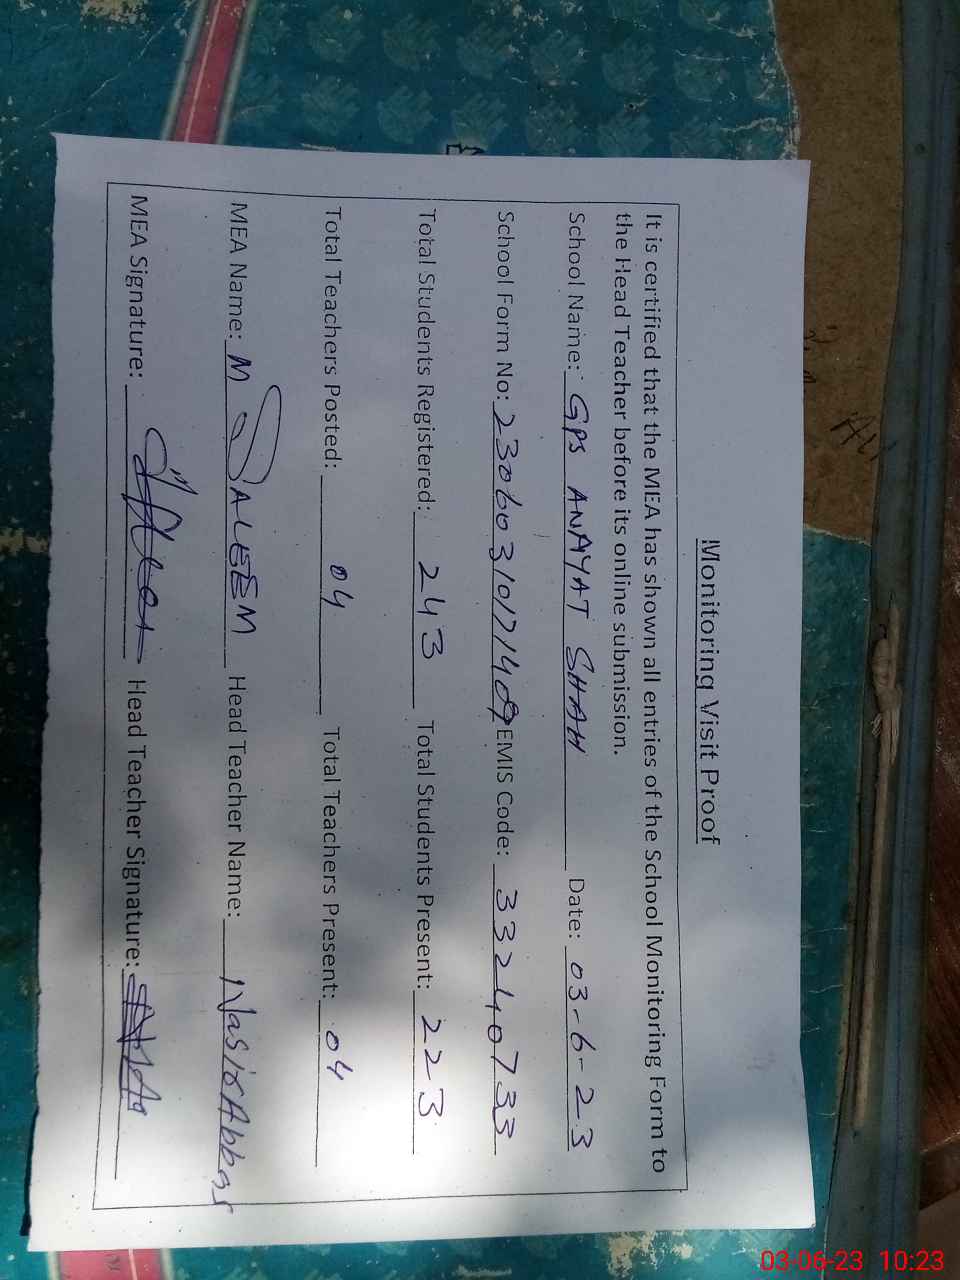 Monitoring Visit Proof
It is certified that the MEA has shown all entries of the School Monitoring Form to
the Head Teacher before its online submission.
School Name: GPS ANAYAT SHAH Date: 03-6-23
School Form No: 23060310171409 EMIS Code: 33240733
Total Students Registered: 243 Total Students Present: 223
Total Teachers Posted: 04 Total Teachers Present: 04
MEA Name: M SALEEM Head Teacher Name: Nasir Abbas
MEA Signature: Head Teacher Signature:
03-06-23 10:23